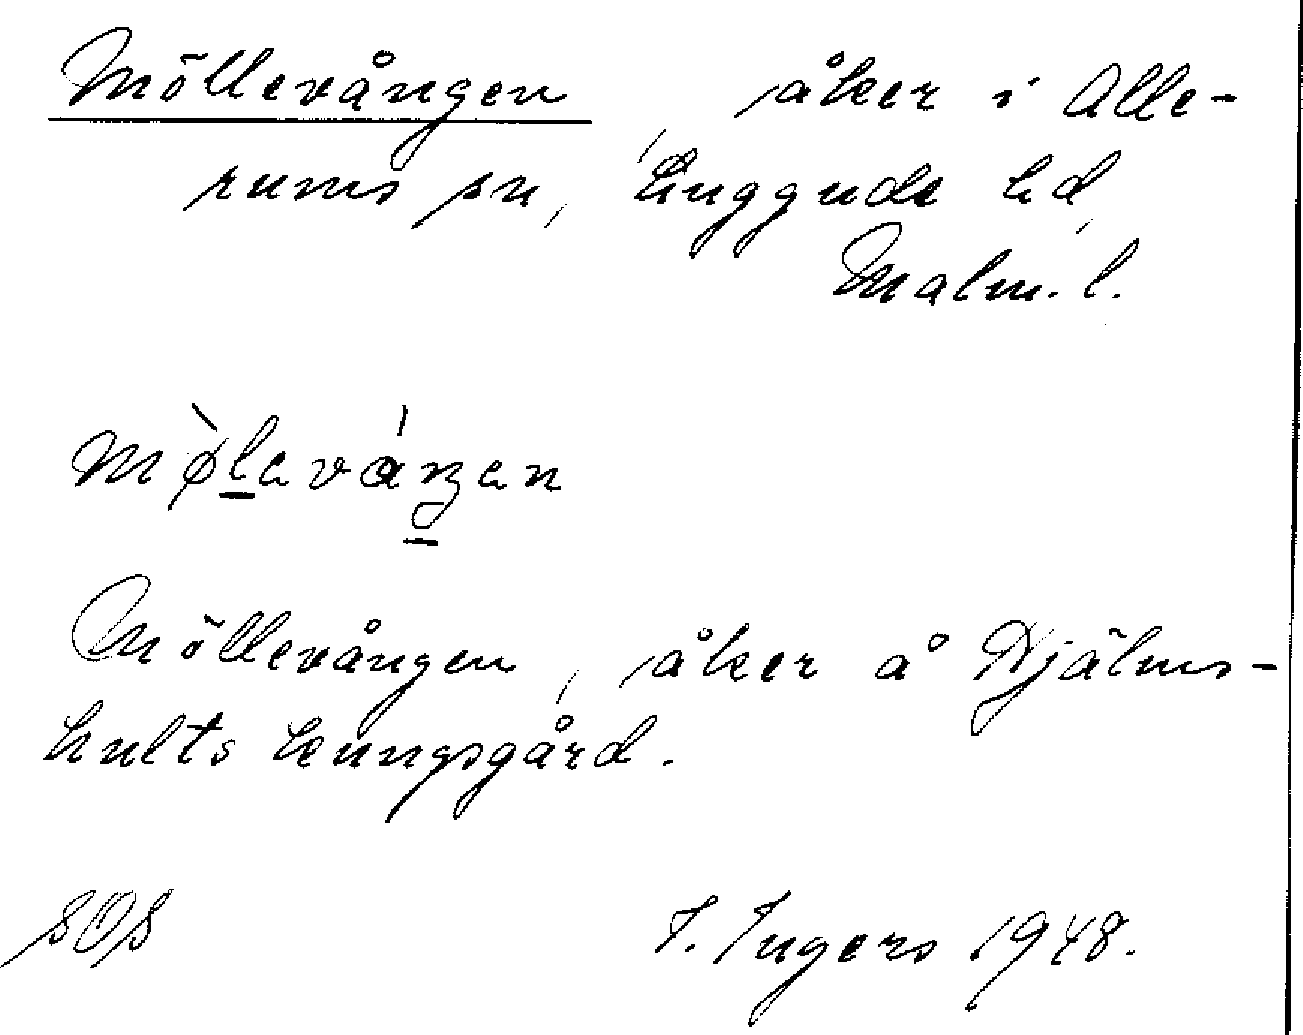 Möllevången, åker i Alle-
rums sn, Luggude hd,
Malm. l.
Möllevången, åker å Hjälms-
hults kungsgård.
SOS I. Ingers 1948.